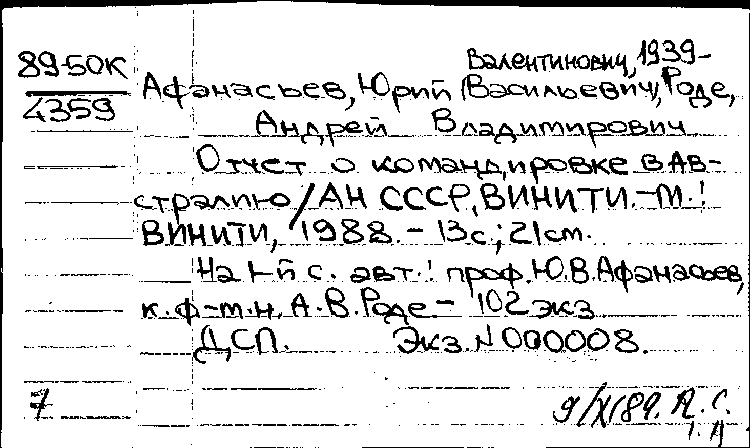 Валентинович, 1939-
89-50К
4359
Афанасьев, Юрий (Васильевич), Роде,
Андрей Владимирович
Отчет о командировке в Ав-
стралию / АН СССР, ВИНИТИ. - М.:
ВИНИТИ, 1988. - 13с.; 21см.
На 1-й с. авт.: проф. Ю.В. Афанасьев,
к.ф-м.н. А.В. Роде - 102 экз
ДСП. Экз. N 000008.
7
9/XI89.